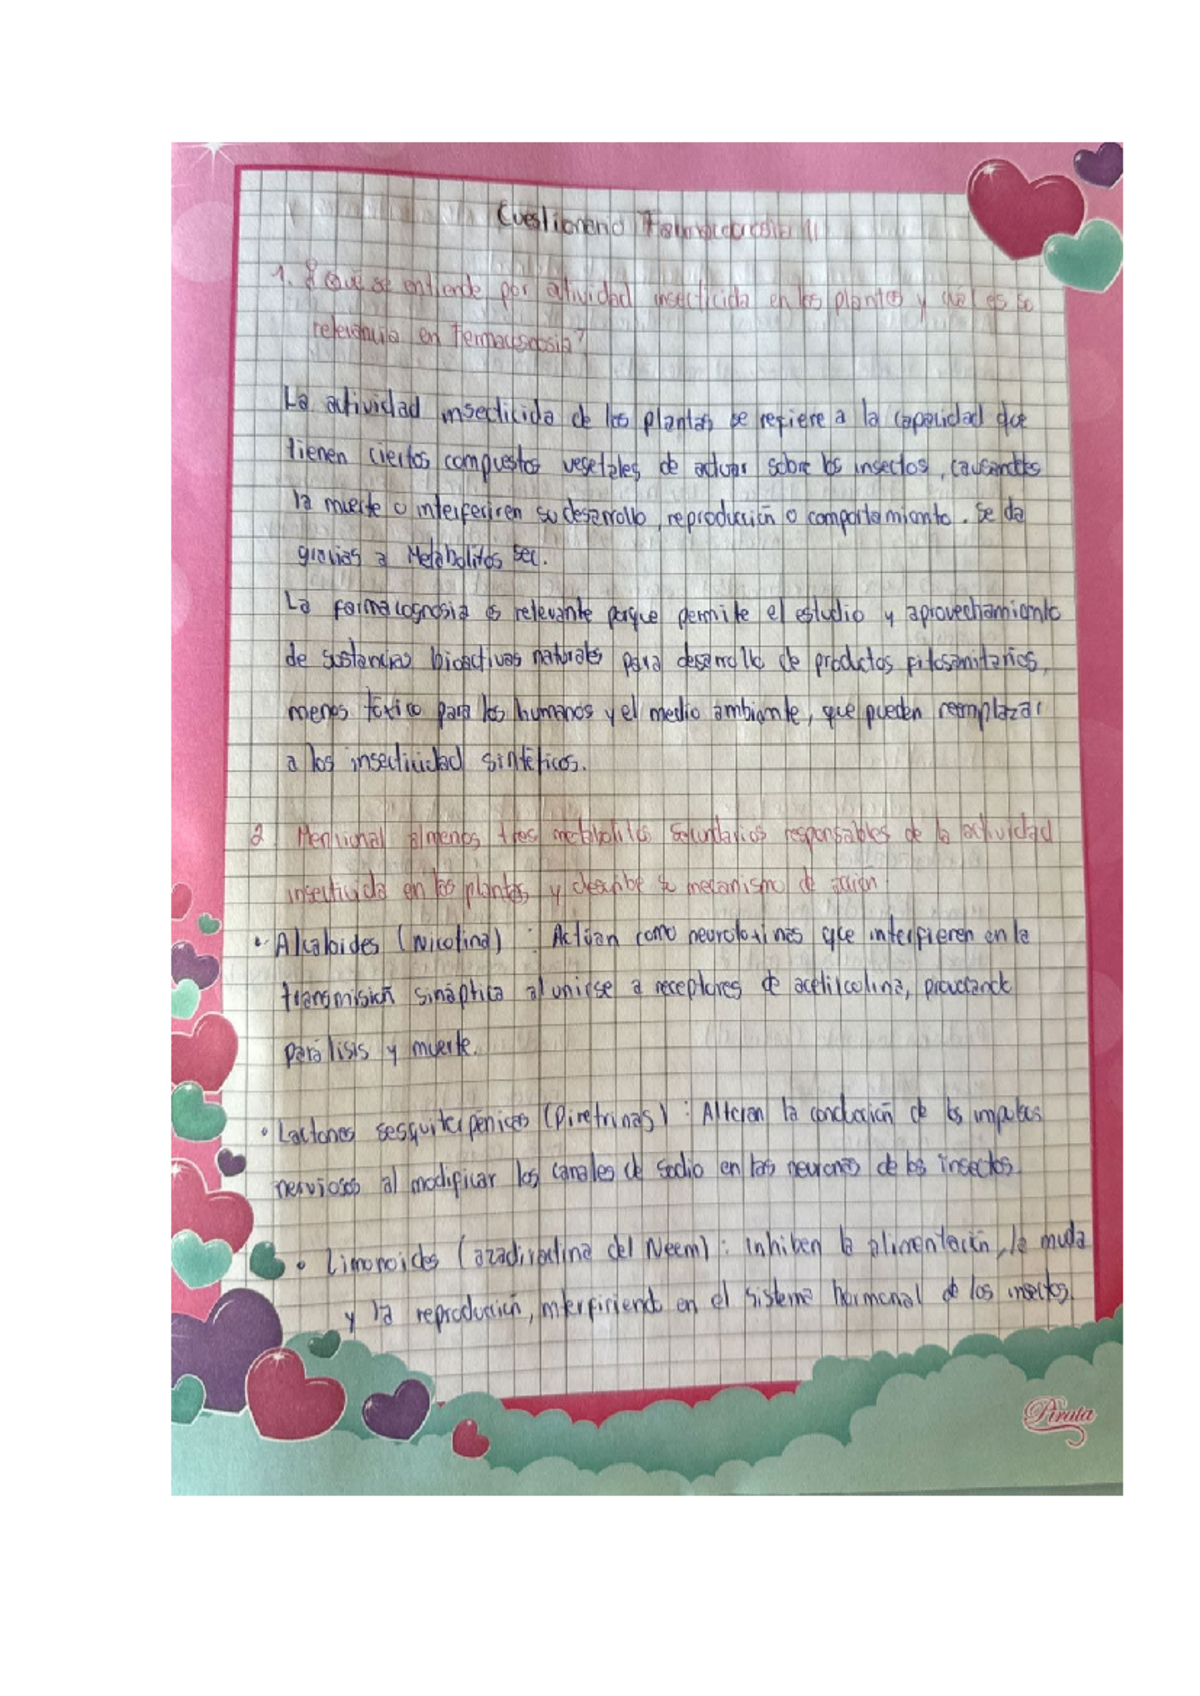 Cuestionario Farmacognosia II
1. ¿Qué se entiende por atividad insecticida en las plantas y cuál es su
relevancia en Farmacognosia?
La actividad insecticida de las plantas se refiere a la capacidad que
tienen ciertos compuestos vegetales de actuar sobre los insectos, causandoles
la muerte o interferiren su desarrollo, reproducción o comportamianto. Se da
gracias a Metabolitos Sec.
La farmacognosia es relevante porque permite el estudio y aprovechamianto
de sustancias bioactivas naturales para desarrollo de productos fitosanitarios,
menos tóxico para los humanos y el medio ambiante, que pueden reemplazar
a los insecticidad sintéticos.
2. Mencional almenos tres metabolitos secundarios responsables de la actividad
insecticida en las plantas y describe su mecanismo de acción.
• Alcaloides (Nicotina) : Actúan como neurotoxinas que interfieren en la
transmisión sináptica al unirse a receptores de acetilcolina, provocando
parálisis y muerte.
• Lactonas sesquiterpénicas (Piretrinas) : Alteran la conducción de los impulsos
nerviosos al modificar los canales de sodio en las neuronas de los insectos.
• Limonoides (azadiractina del Neem) : inhiben la alimentación, la muda
y la reproducción, interfiriendo en el sistema hormonal de los insectos.
Pirata